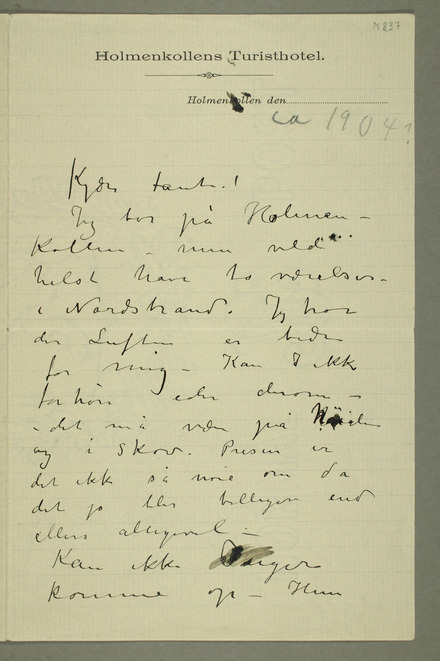 N 837
Holmenkollens Turisthotel.
Holmenkollen den
ca 1904?
Kjære tante!
Jeg bor på Holmen-
kollen – men vild
helst have to værelser
i Nordstrand. Jeg tror
der Luften er bedre
for mig – Kan I ikke
forhøre eder derom –
– det må være på Høiden
og i Skov. Prisen er
det ikke så nøie om da
det jo blir billigere end
ellers alligevel –
Kan ikke Inger
komme op – Hun